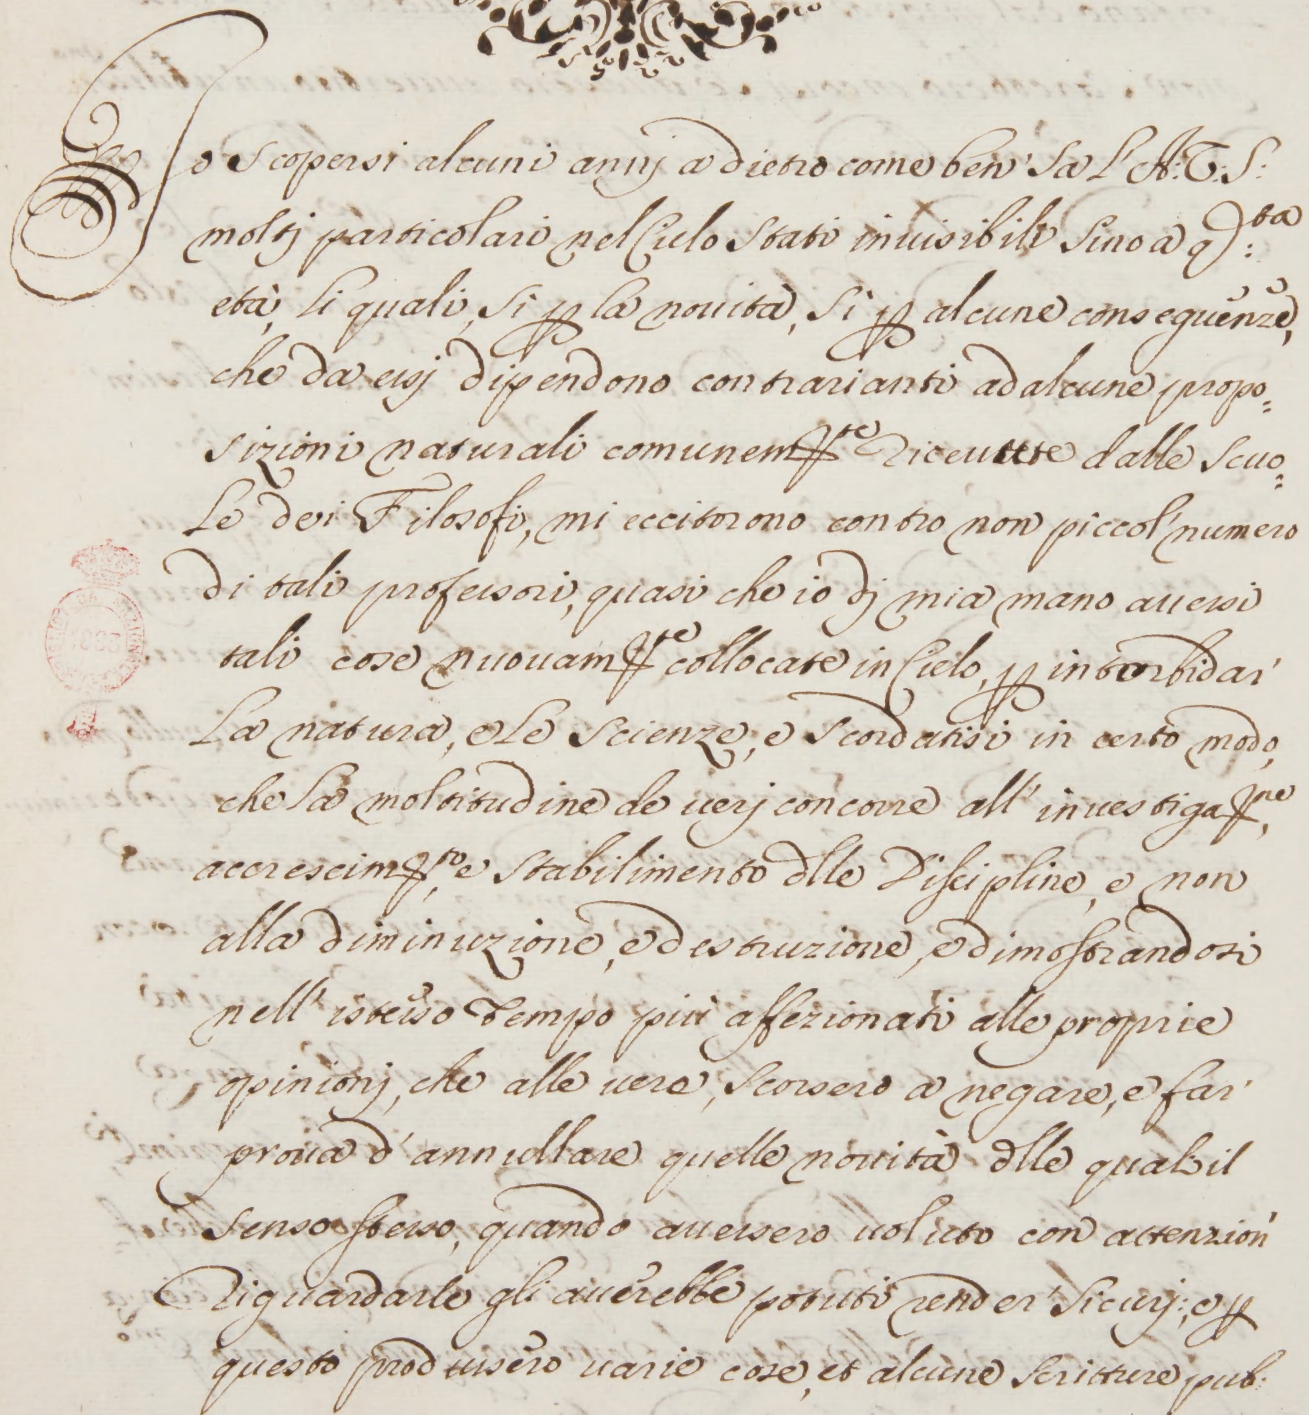 Io Scopersi alcuni annj a dietro come ben' Sa L'A: T: S:
moltj particolari nel Cielo Stati inuisibili Sino a q:ta
età, Li quali, Si p la nouità, Sì p alcune conseguenze,
che da essj dipendono contrarianti ad alcune propo=
sizioni naturali comunemte riceuute dalle Scuo=
Le dei Filosofi, mi eccitorono contro non piccol' numero
di tali professori, quasi che io dj mia mano auessi
tali cose nuouamte collocate in Cielo, p intorbidar'
La natura, e Le Scienze, e Scordatisi in certo modo,
che La moltitudine de uerj concorre all' inuestigane,
accrescimto, e Stabilimento dlle Discipline, e non
alla diminuzione, e destruzione, e dimostrandosi
nell' istesso Tempo più affezionati alle proprie
opinionj, che alle uere, Scorsero a negare, e far'
proua d' annullare quelle nouità dlle quali il
Senso stesso, quando auessero uoluto con attenzion'
Riguardarle gli auerebbe potuti render' Sicurj; e p
questo produssero uarie cose, et alcune Scritture pub: